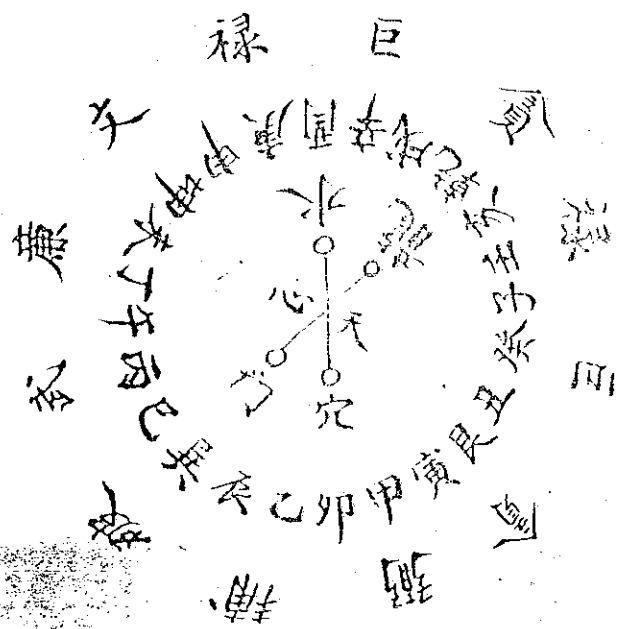 禄巨貪禄巨貪弼輔破武廉文
子癸丑艮寅甲卯乙辰巽巳丙午丁未坤申庚酉辛戌乾亥壬
水
天心
穴